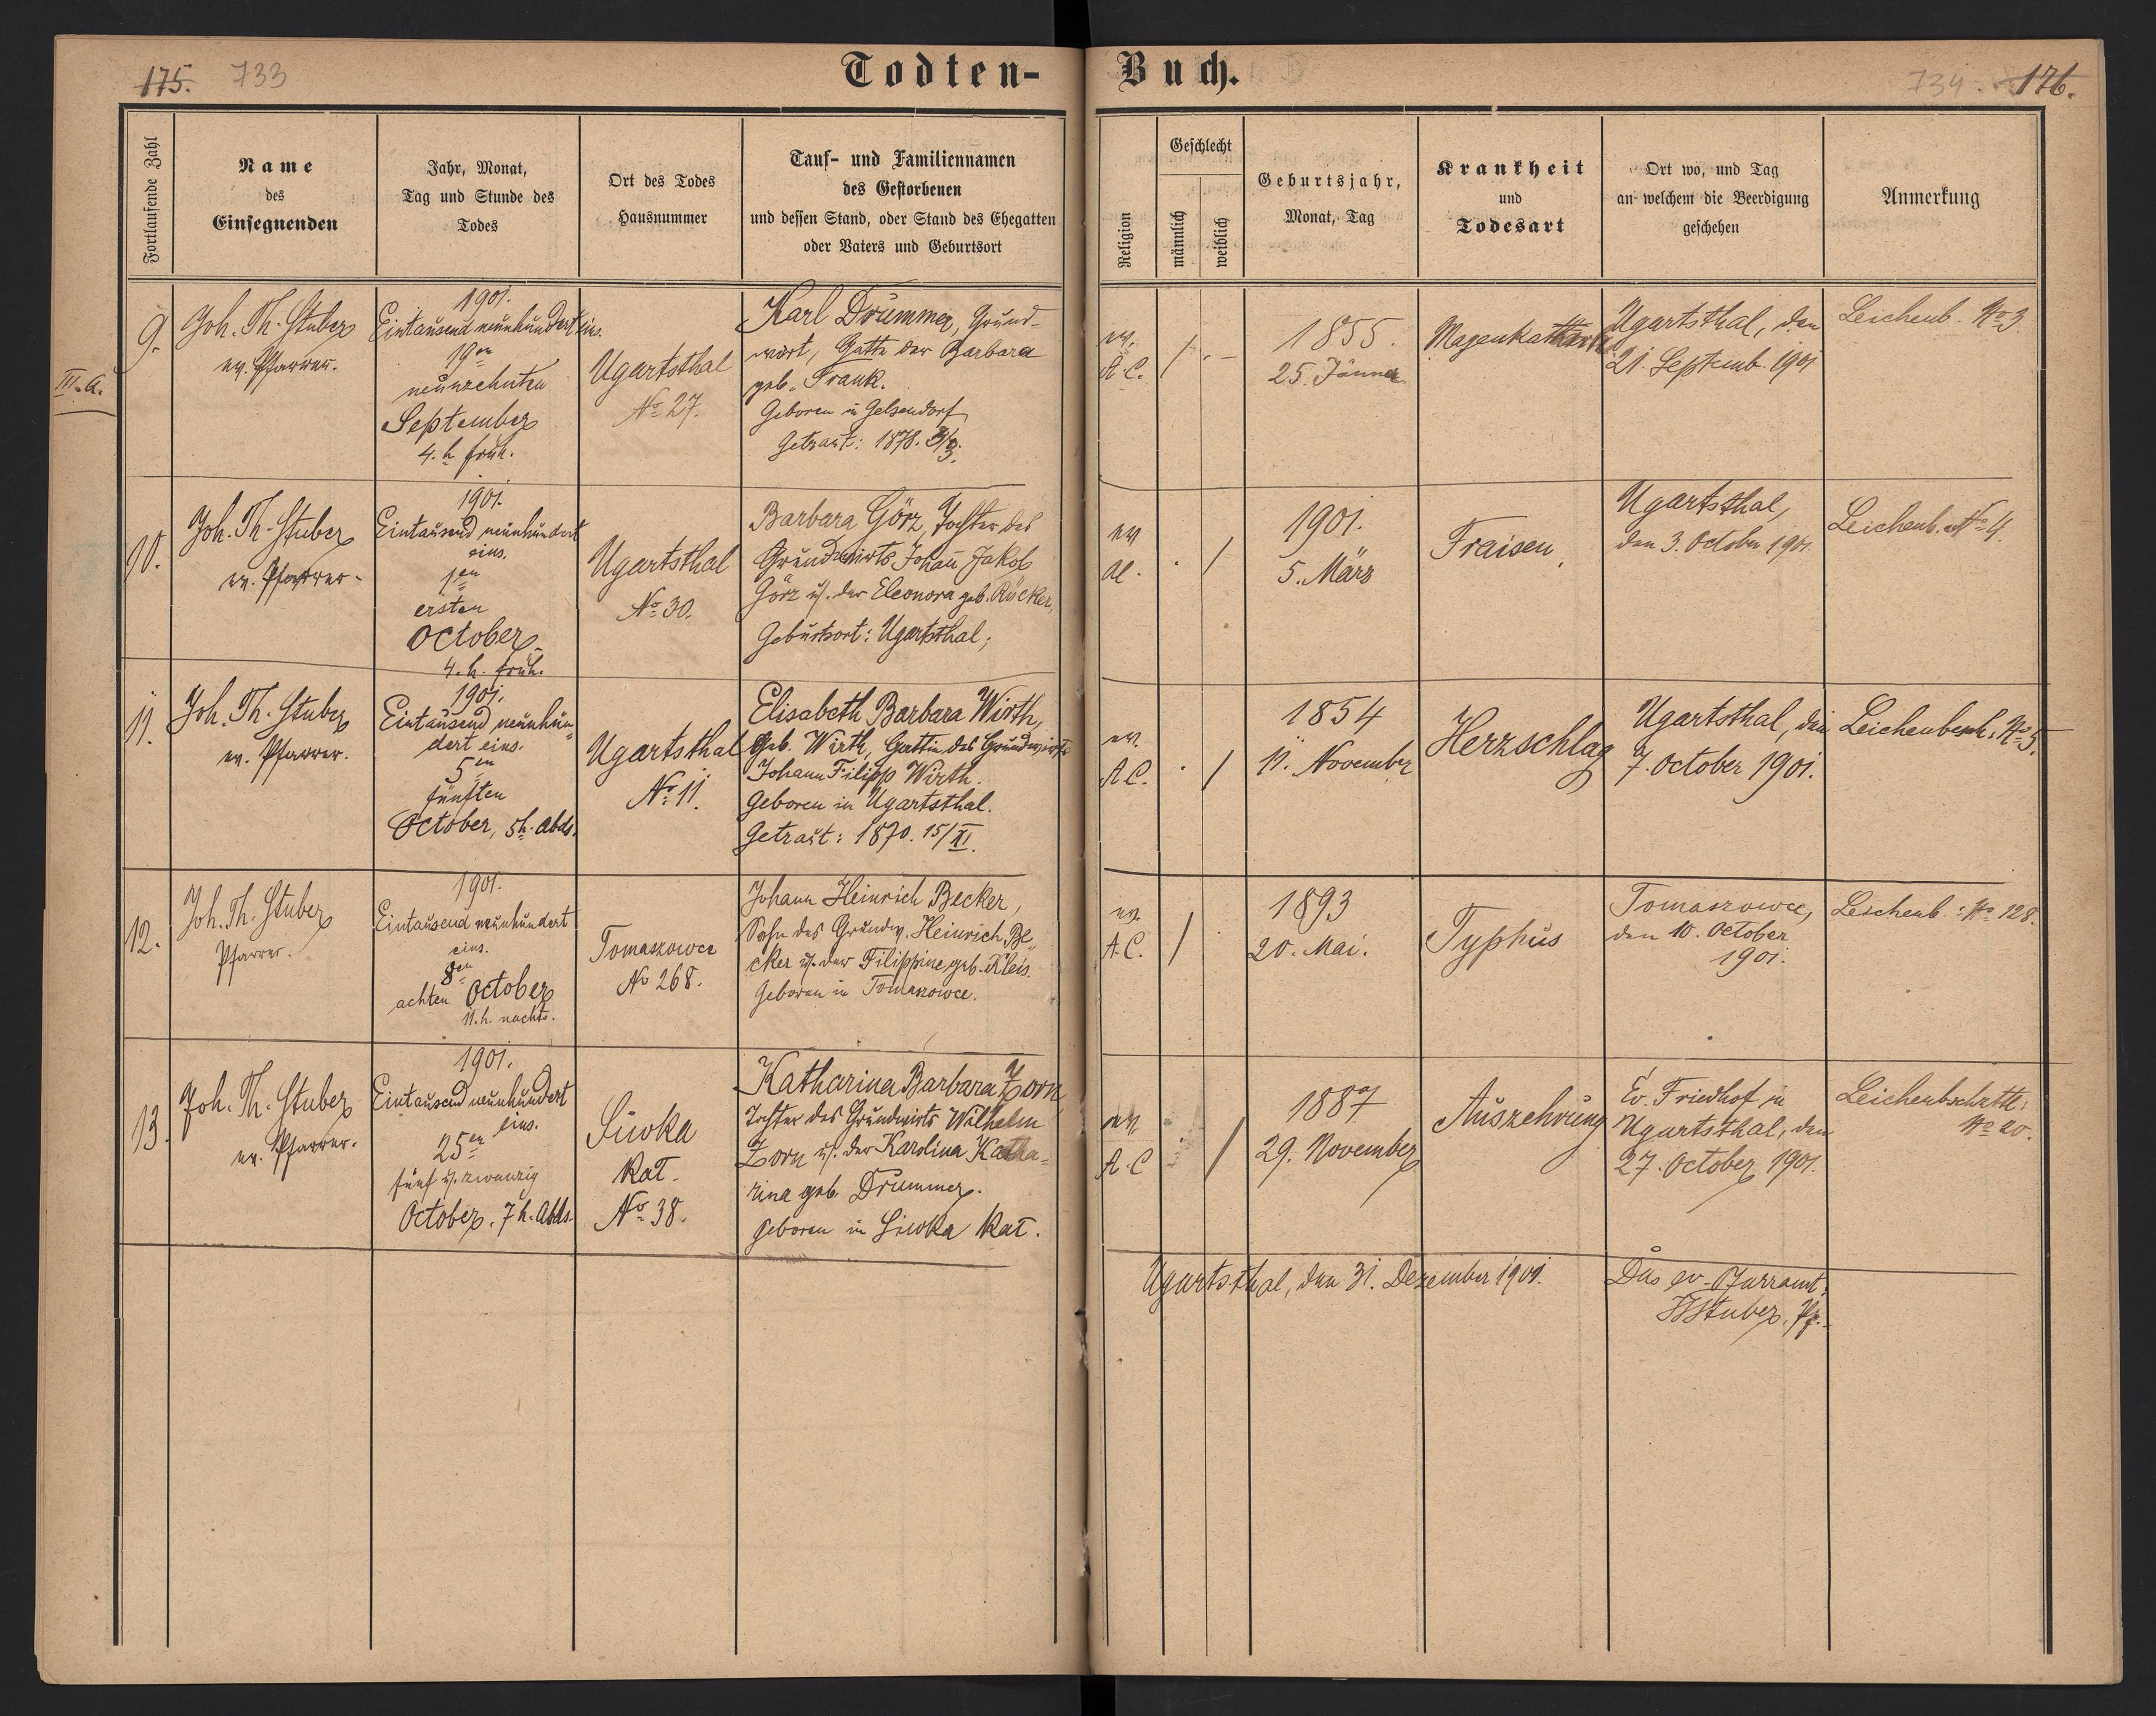 175. 733
Todten-
Buch.
734. 176.
Fortlaufende Zahl
Name
des
Einsegnenden
Jahr, Monat,
Tag und Stunde des
Todes
Ort des Todes
Hausnummer
Tauf- und Familiennamen
des Gestorbenen
und dessen Stand, oder Stand des Ehegatten
oder Vaters und Geburtsort
Religion
Geschlecht
männlich
weiblich
Geburtsjahr,
Monat, Tag
Krankheit
und
Todesart
Ort wo, und Tag
an welchem die Beerdigung
geschehen
Anmerkung
III. A.
9.
Joh. Th. Stuber
ev. Pfarrer.
1901.
Eintausend neunhundert eins.
19en
neunzehnten
September
4. h früh.
Ugartsthal
No 27.
Karl Drummer, Grund-
wirt, Gatte der Barbara
geb. Frank.
Geboren in Gelsendorf
Getraut: 1878.
ev.
A. C.
/
1855.
25. Jänner
Magenkatharr
Ugartsthal, den
21. Septemb. 1901
Leichenb. No 3.
10.
Joh. Th. Stuber
ev. Pfarrer.
1901.
Eintausend neunhundert
eins.
1en
ersten
October
4. h. früh.
Ugartsthal
No 30.
Barbara Görz, Tochter des
Grundwirts Johann Jakob
Görz u. der Eleonora geb. Röcker,
Geburtsort: Ugartsthal;
ev
/
1901.
5. März
Fraisen,
Ugartsthal,
den 3. October 1901.
Leichenb. No 4.
11.
Joh. Th. Stuber
ev. Pfarrer.
1901.
Eintausend neunhun-
dert eins.
5en
fünften
October, 5h. Abds.
Ugartsthal
No 11.
Elisabeth Barbara Wirth,
geb. Wirth, Gattin des Grundwirts
Johann Filipp Wirth.
Geboren in Ugartsthal.
Getraut: 1870. 15/XI.
ev.
A. C.
/
1854
11. November
Herzschlag
Ugartsthal, den
7. October 1901.
Leichenbesch. No 5.
12.
Joh. Th. Stuber
Pfarrer.
1901.
Eintausend neunhundert
eins.
8en
achten October
11. h. nachts.
Tomaszowce
No 268.
Johann Heinrich Becker,
Sohn des Grundw. Heinrich Be-
cker u. der Filippine geb. Kleis.
Geboren in Tomaszowce.
ev.
A. C.
/
1893
20. Mai.
Typhus
Tomaszowce,
den 10. October
1901.
Leichenb.: No 128.
13.
Joh. Th. Stuber
ev. Pfarrer.
1901.
Eintausend neunhundert
eins.
25en
fünf u. zwanzig
October. 7 h. Abds.
Siwka
Kat.
No 38.
Katharina Barbara Zorn,
Tochter des Grundwirts Wilhelm
Zorn u. der Karolina Katha-
rina geb. Drummer.
geboren in Siwka Kat.
ev.
A. C
/
1887
29. November
Auszehrung
Ev. Friedhof in
Ugartsthal, den
27. October 1901.
No 20.
Ugartsthal, den 31. Dezember 1901.
Das ev. Pfarramt:
Stuber, Pf.